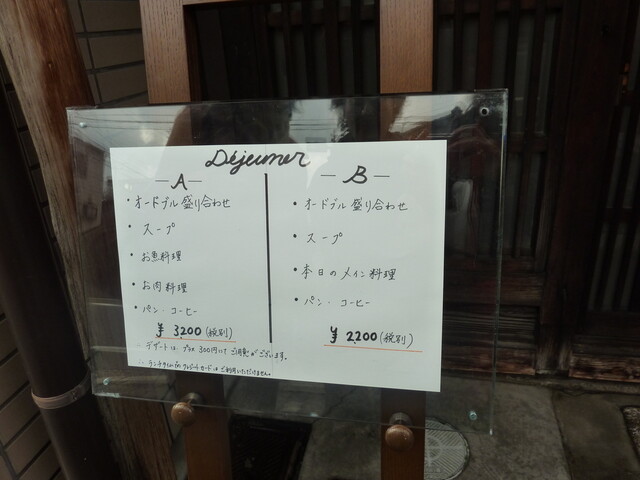 Déjeuner
-A-
・オードブル盛り合わせ
・スープ
・お魚料理
・お肉料理
・パン・コーヒー
¥3200(税別)
-B-
・オードブル盛り合わせ
・スープ
・本日のメイン料理
・パン・コーヒー
¥2,200(税別)
デザートは、プラス300円にてご用意がございます。
ランチタイムのクレジットカードはご利用いただけません。